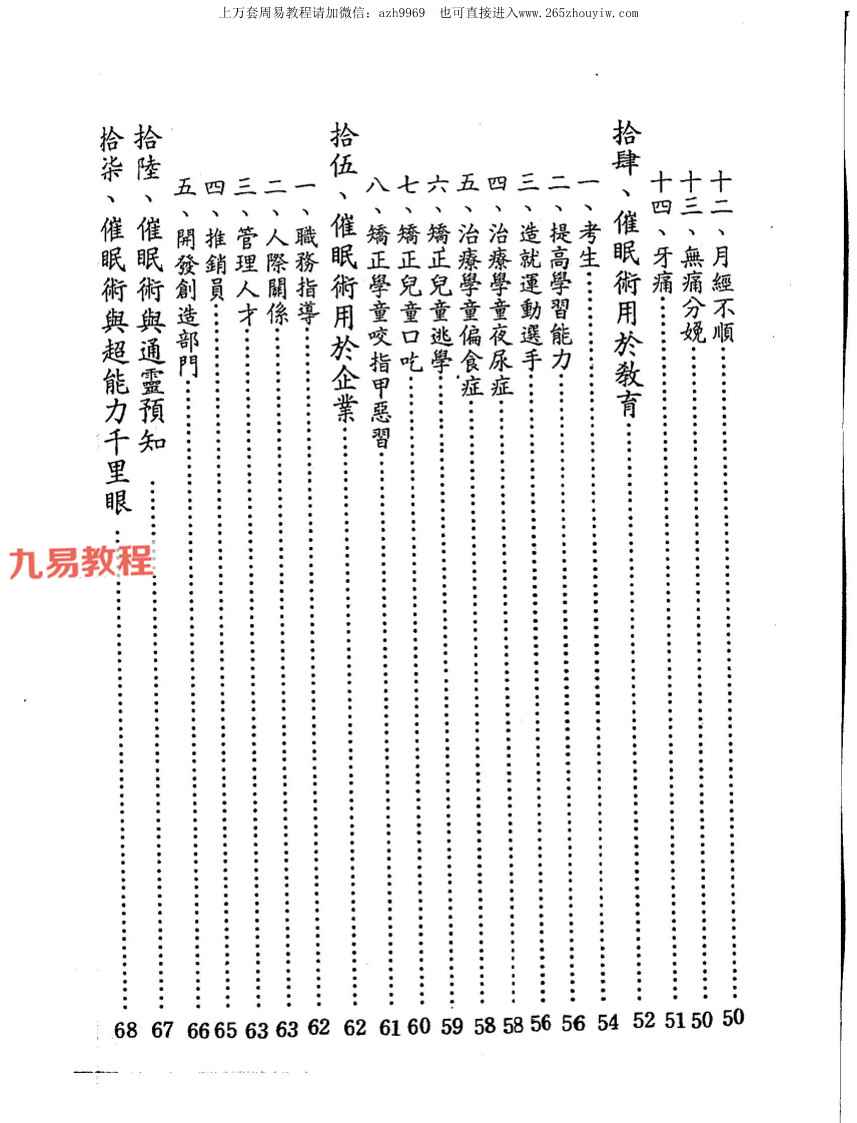 上万套周易教程请加微信：azh9969　也可直接进入www.265zhouyiw.com
十二、月經不順……50
十三、無痛分娩……50
十四、牙痛……51
拾肆、催眠術用於教育……52
一、考生……54
二、提高學習能力……56
三、造就運動選手……56
四、治療學童夜尿症……58
五、治療學童偏食症……58
六、矯正兒童逃學……59
七、矯正兒童口吃……60
八、矯正學童咬指甲惡習……61
拾伍、催眠術用於企業……62
一、職務指導……62
二、人際關係……63
三、管理人才……63
四、推銷員……65
五、開發創造部門……66
拾陸、催眠術與通靈預知……67
拾柒、催眠術與超能力千里眼……68
九易教程